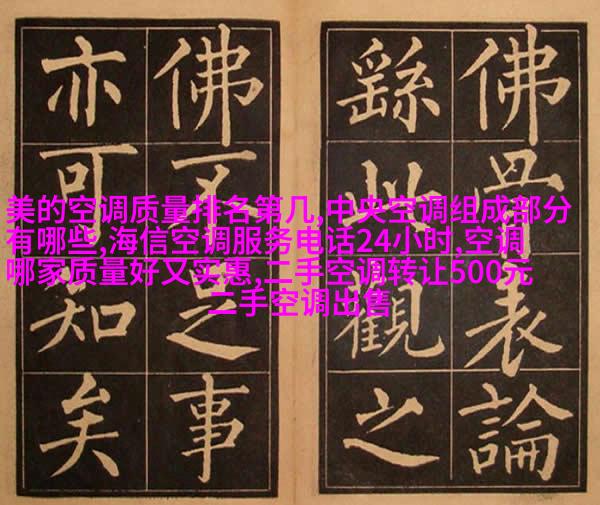 佛骨表論
繇此觀之
佛不足事
亦可知矣
美的空调质量排名第几,中央空调组成部分
有哪些,海信空调服务电话24小时,空调
哪家质量好又实惠,二手空调转让500元
二手空调出售